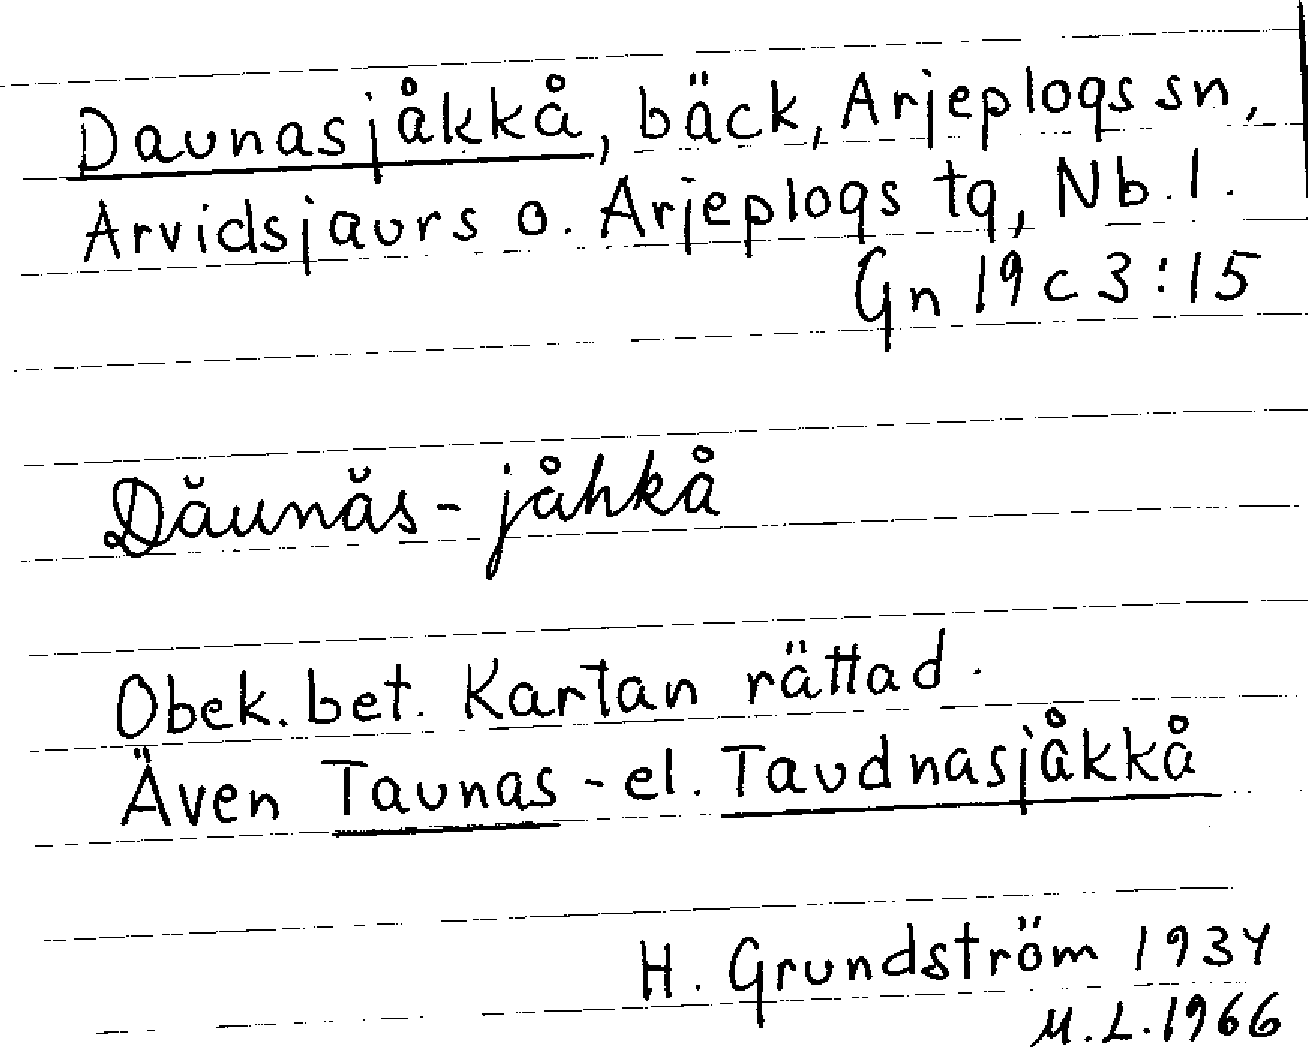 Daunasjåkkå, bäck, Arjeplogs sn,
Arvidsjaurs o. Arjeplogs tg, Nb. l.
Gn 19 c 3:15
Dăunăs-jåhkå
Obek. bet. Kartan rättad.
Även Taunas- el. Taudnasjåkkå
H. Grundström 1934
M.L. 1966